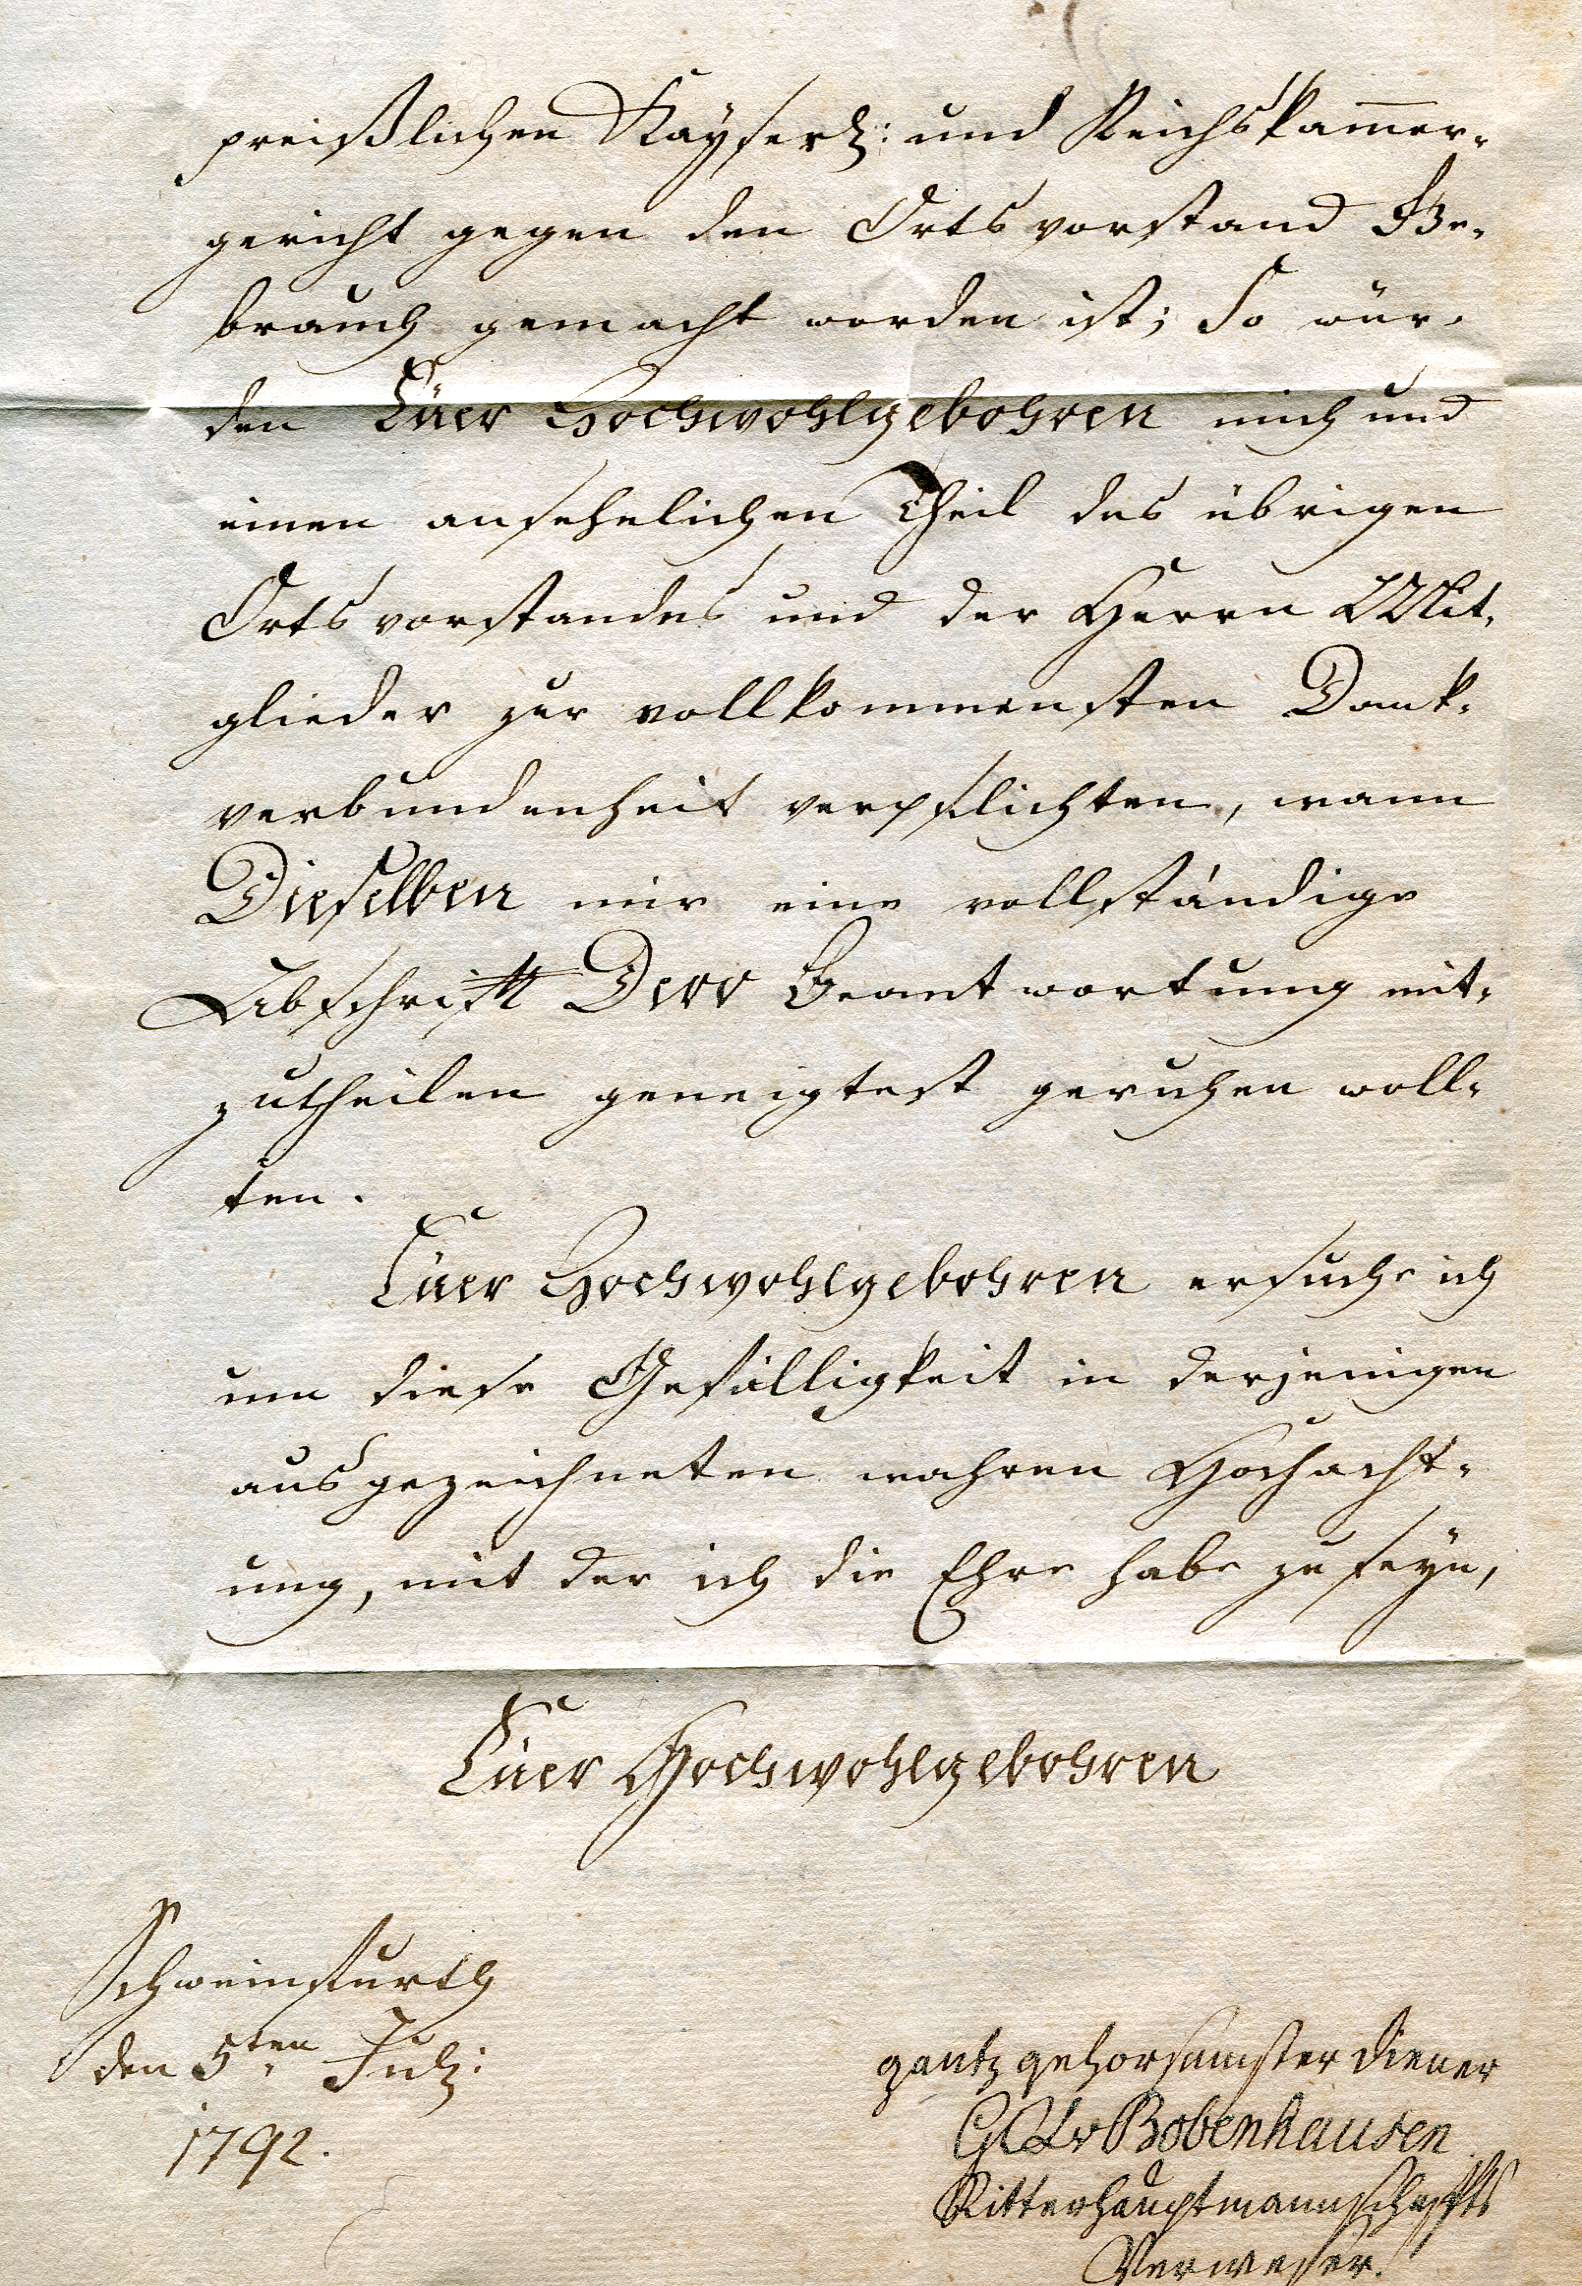 preißlichen Kayserl: und Reichskam̅er-
gericht gegen den Ortsvorstand Ge-
brauch gemacht worden ist; So wür-
den Euer Hochwohlgebohren mich und
einen ansehelichen Theil des übrigen
Ortsvorstandes und der Herrn Mit-
glieder zur vollkommensten Dank-
verbundenheit verpflichten, wann
Dieselben mir eine vollständige
Abschrifft Dero Beantwortung mit-
zutheilen geneigtest geruhen woll-
ten.
Euer Hochwohlgebohren ersuche ich
um diese Gefälligkeit in derjenigen
ausgezeichneten wahren Hochacht-
ung, mit der ich die Ehre habe zu seÿn,
Euer Hochwohlgebohren
Schweinfurth
den 5ten Julÿ:
1792.
gantz gehorsamster diener
v Bobenhausen
Ritterhauptmannschaffts
Verweser.